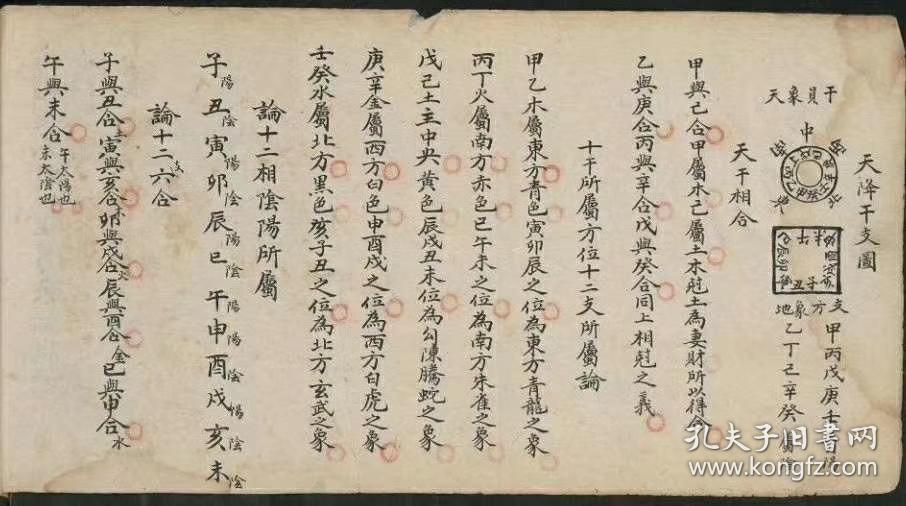 天降干支圖
干員象天
中
支方象地
甲丙戊庚壬屬陽
乙丁己辛癸屬陰
天干相合
甲與己合甲屬木己屬土木尅土為妻財所以得合
乙與庚合丙與辛合戊與癸合同上相尅之義
十干所屬方位十二支所屬論
甲乙木屬東方青色寅卯辰之位為東方青龍之象
丙丁火屬南方赤色巳午未之位為南方朱雀之象
戊己土主中央黃色辰戌丑未位為勾陳騰蛇之象
庚辛金屬西方白色申酉戌之位為西方白虎之象
壬癸水屬北方黑色亥子丑之位為北方玄武之象
論十二相陰陽所屬
子陽丑陰寅陽卯陰辰陽巳陰午陽申陽酉陰戌陽亥陰未陰
論十二支六合
子與丑合土寅與亥合木卯與戌合火辰與酉合金巳與申合水
午與未合午太陽也未太陰也
孔夫子旧书网
www.kongfz.com